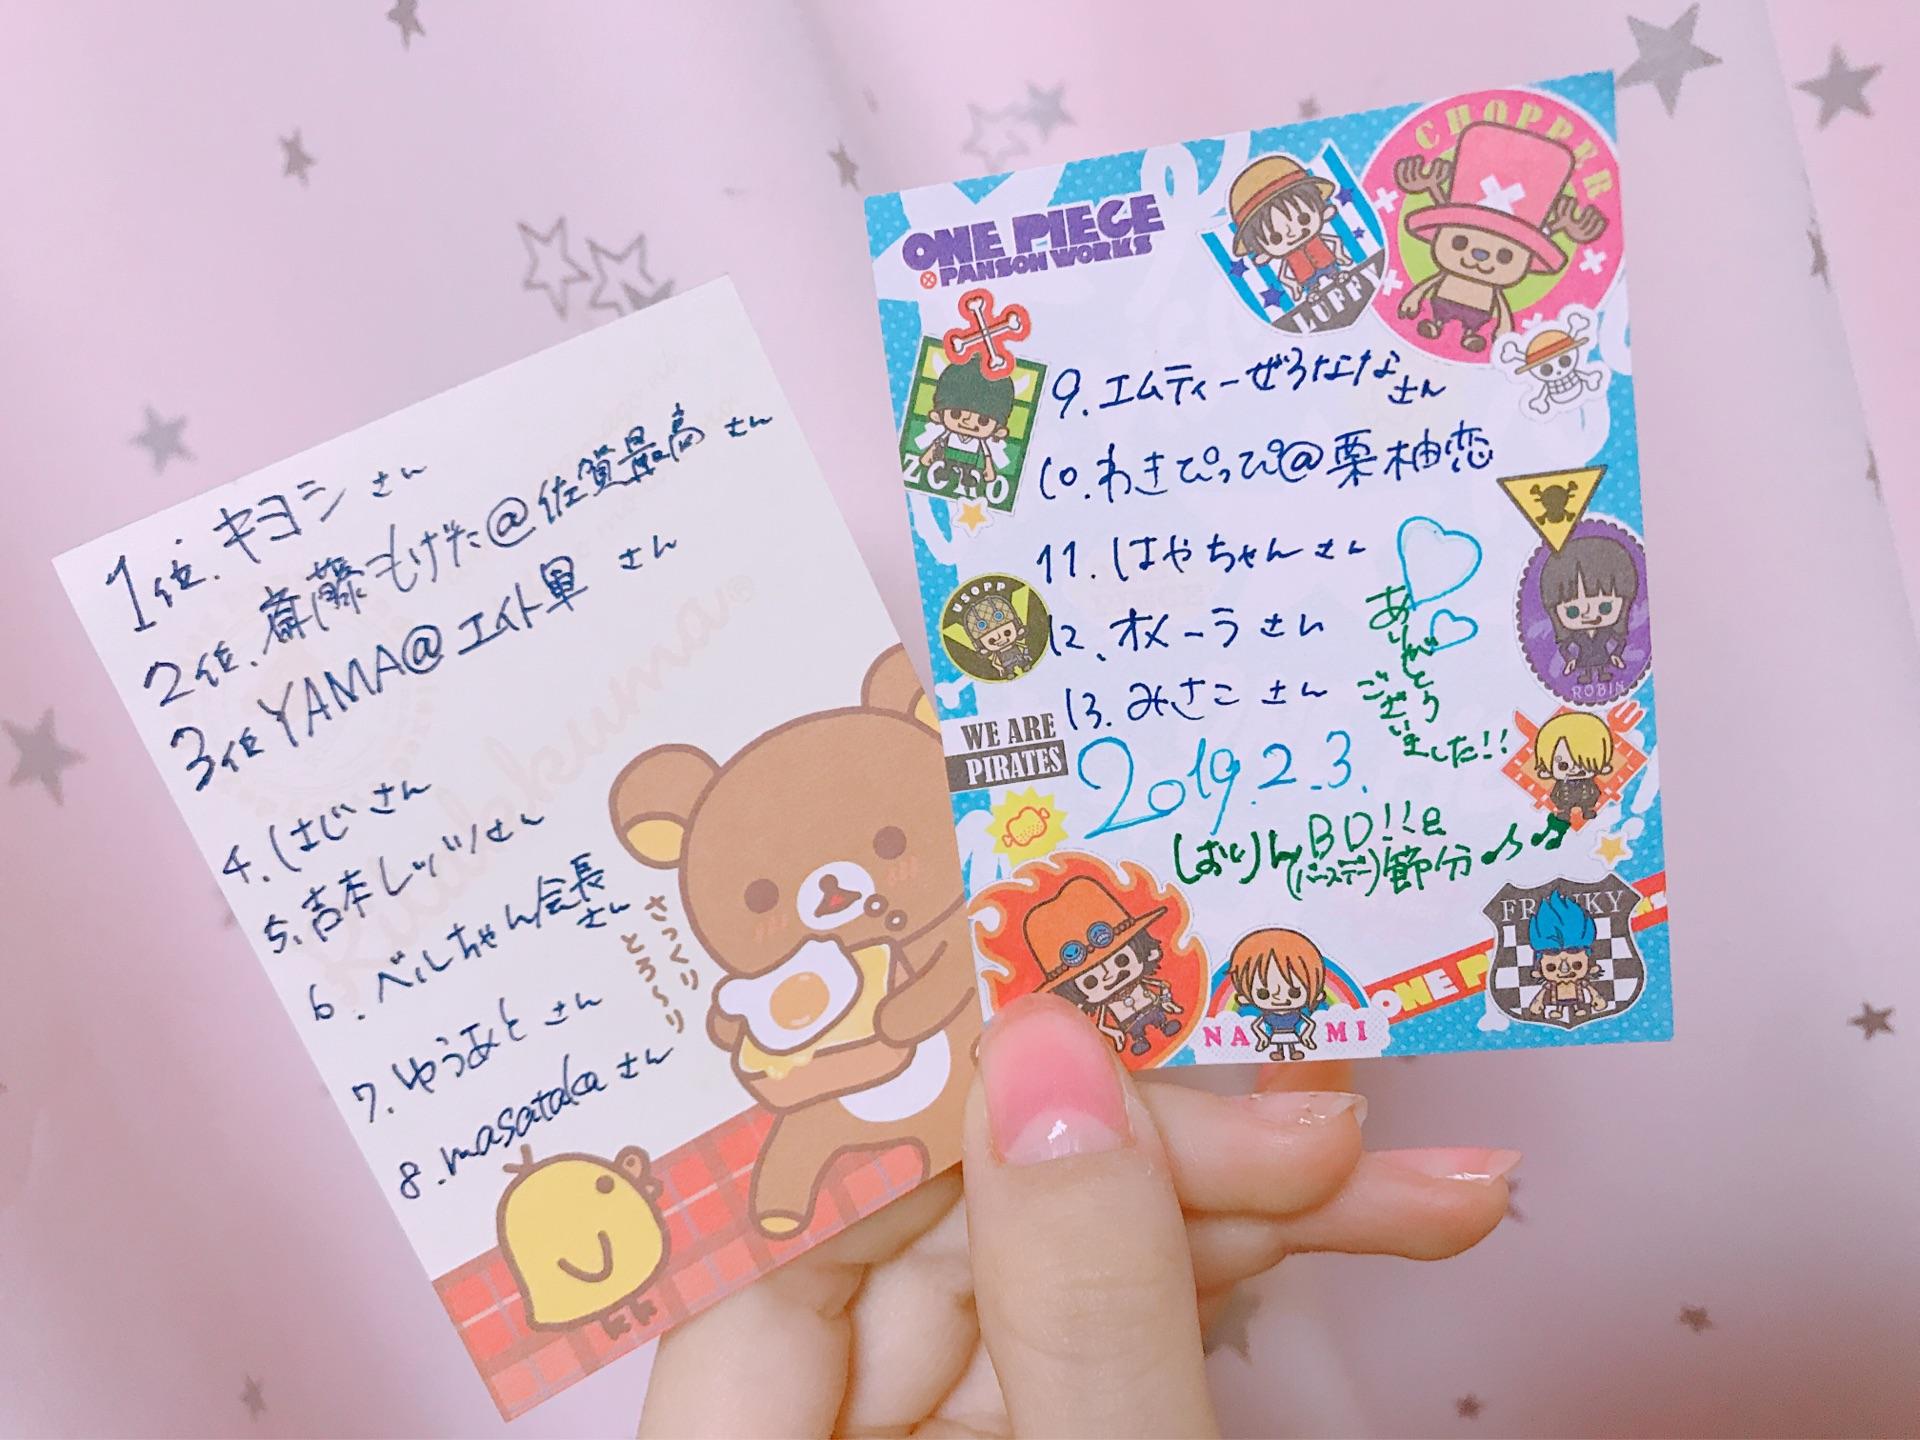 1位.キヨシさん
2位.齋藤もげた@佐賀最高さん
3位YAMA@エイト軍さん
4.はじさん
5.吉本しッパさん
6.べるちゃん会長さん
7.ゆうあとさん
8.masatakaさん
さっくり
とろ〜り
Rilakkuma
ONE PIECE
PANSON WORKS
LUFFY
CHOPPER
ZORO
9.エムティーぜろななさん
10.わきぴっぴ@栗柚恋
11.はやちゃんさん
USOPP
12.オメーラさん
13.みさこさん
ありがとう
ございました!!
ROBIN
WE ARE
PIRATES
2019.2.3.
しおりんBD!!&
(バースデー)節分♪♪
FRANKY
NAMI
ONE P